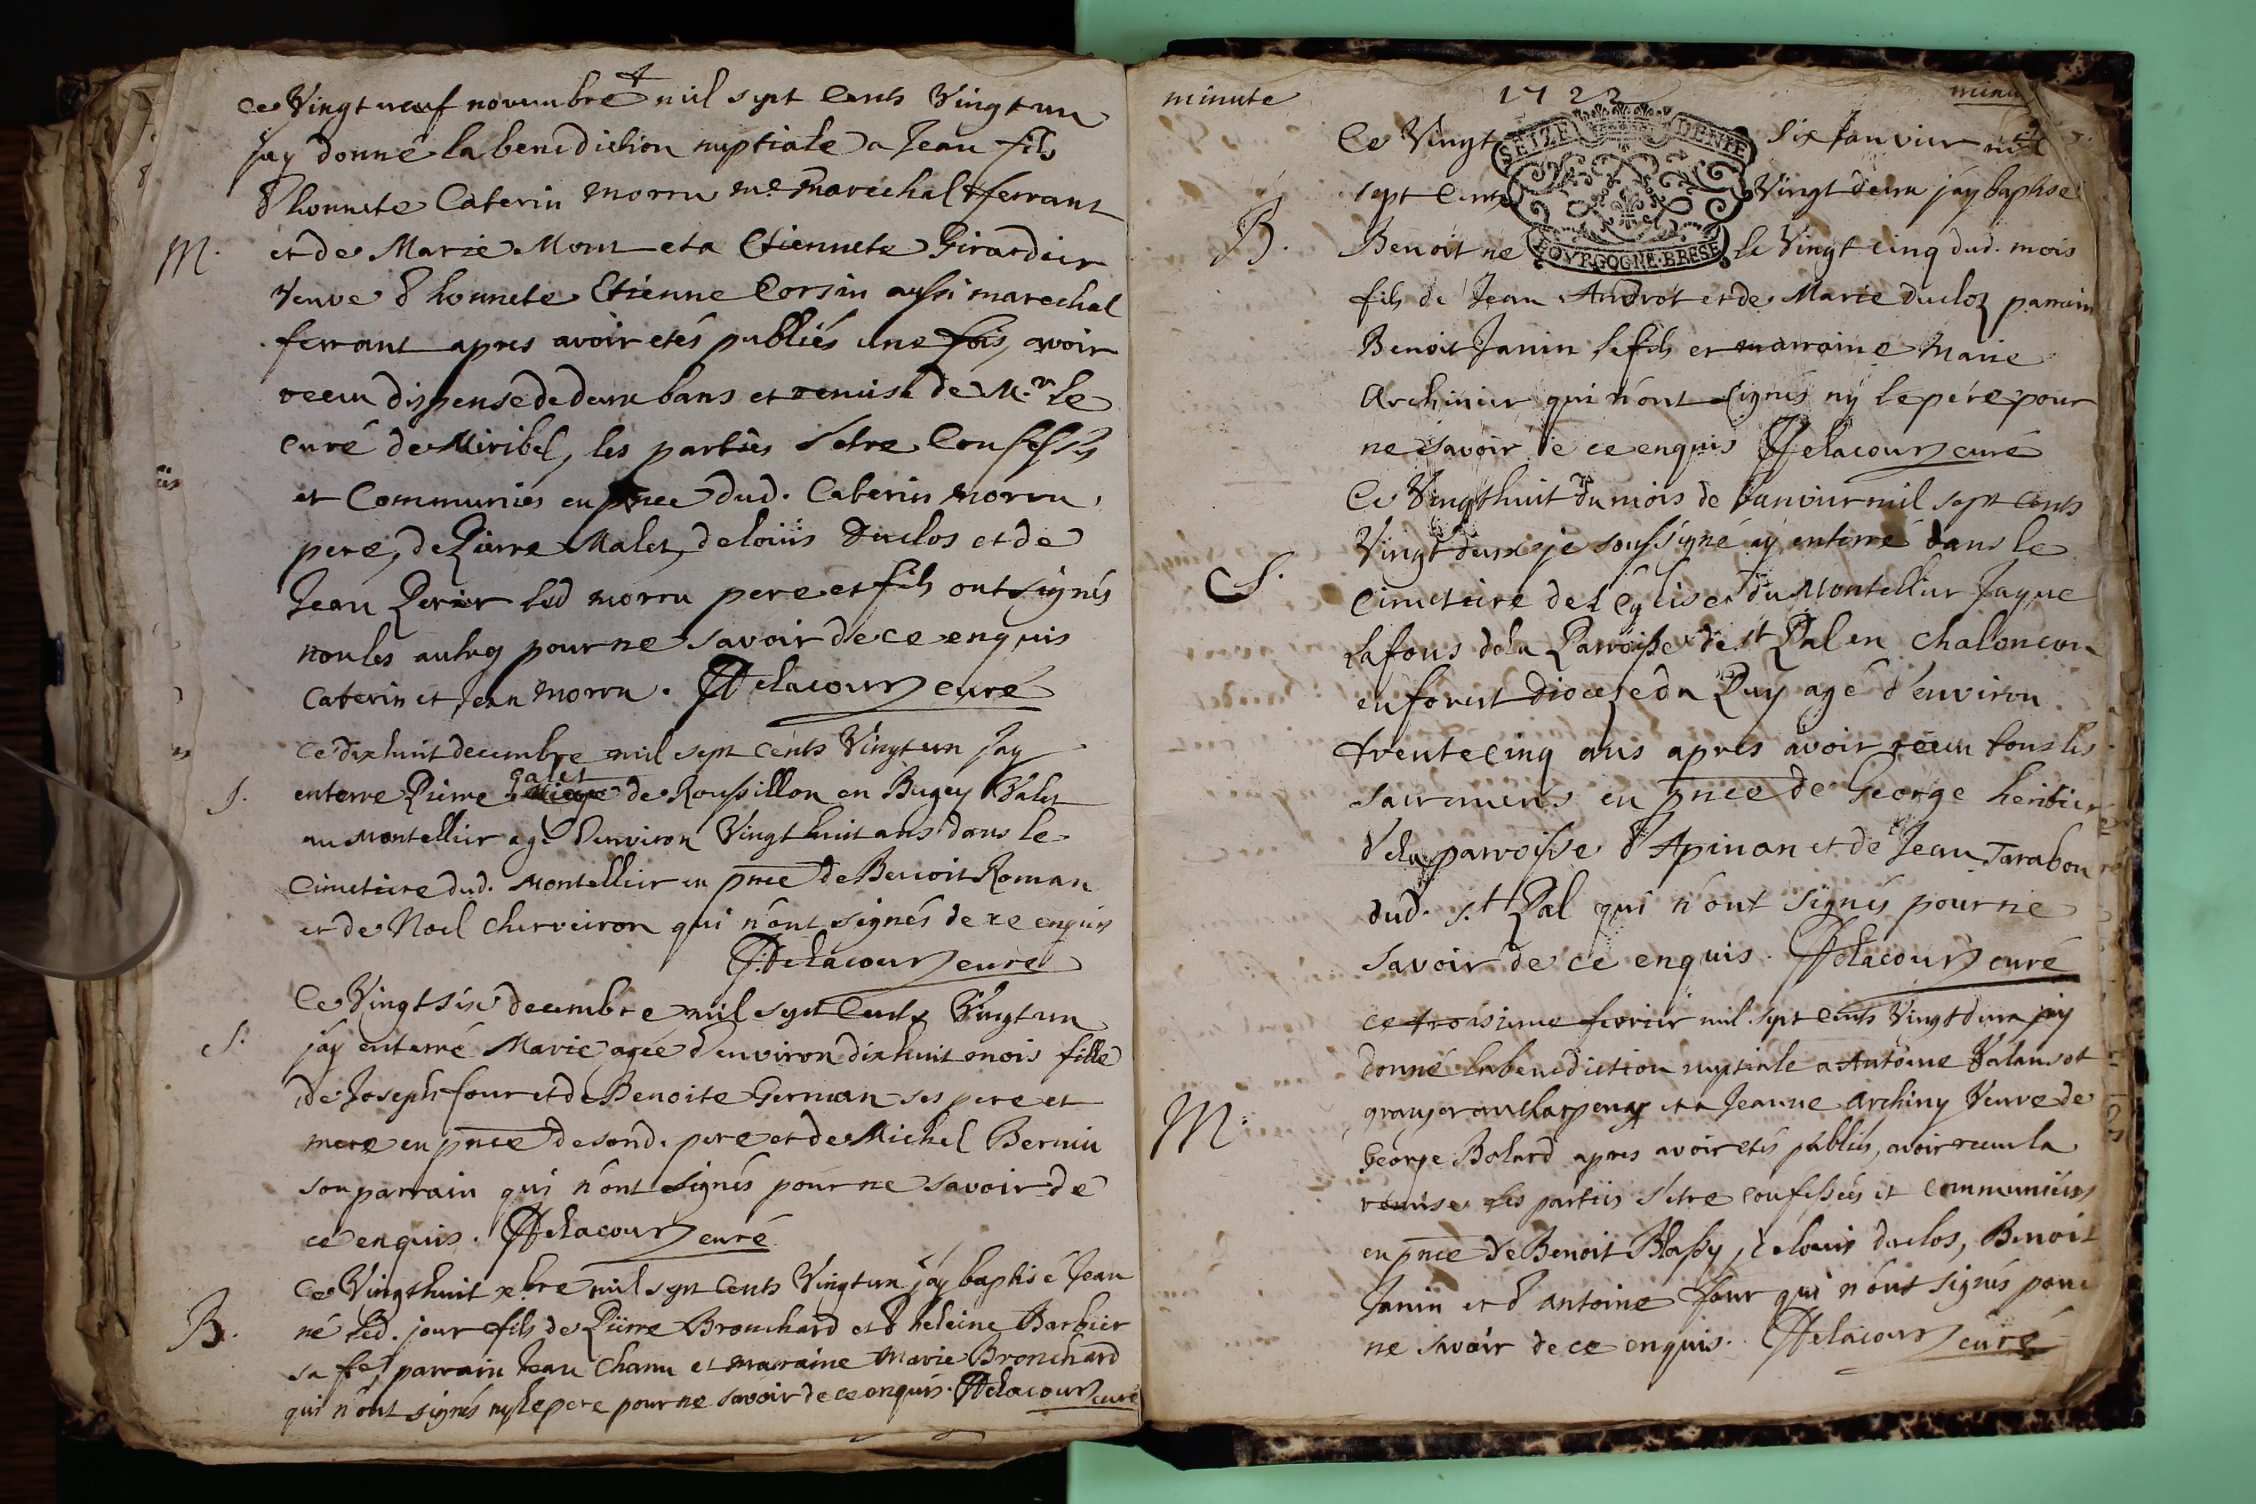 ce Vingt neuf novembre mil sept cents Vingt un
jay donné la benediction nuptiale a Jean fils
d'honnete Caterin Morru me marechal ferrant
M. et de Marie Mont et a Etiennete Girardier
veuve d'honnete Etienne Corsin aussi marechal
ferrant apres avoir etés publiés une fois, avoir
receu dispense de deux bans et remise de Mr. le
curé de Miribel, les parties s'etre Confessés
et Communiés en pnce dud. Caterin Morru
pere, de Pierre Malet, de loüis Duclos et de
Jean Perier led morru pere et fils ont signés
non les autres pour ne savoir de ce enquis
Caterin et Jean Morru. Delacour curé
ce dix huit decembre mil sept cents Vingt un jay
galet
S. enterre Pierre de Roussillon en Bugey Valet
au Montellier agé d'environ Vingt huit ans dans le
Cimetiere dud. Montellier en pnce de Benoit Roman
et de Noel Cherveiron qui n'ont signés de ce enquis
Delacour curé
Ce Vingt six decembre mil sept Cents Vingt un
S. jay enterré Marie agée d'environ dix huit mois fille
de Joseph four et de Benoite German ses pere et
mere en pnce de sond. pere et de Michel Bernin
son parrain qui n'ont signés pour ne savoir de
ce enquis. Delacour curé
Ce Vingt huit xbre mil sept Cents Vingt un jay baptisé Jean
B. né led. jour fils de Pierre Bronchard et d'heleine Barbier
sa fe, parrain Jean Chanu et maraine Marie Bronchard
qui n'ont signés ny le pere pour ne savoir de ce enquis. Delacour curé
minute 1722 minu
Ce Vingt six Janvier mil
SEIZE DENIE
sept Cents Vingt deux jay baptise
B. Benoit né le Vingt cinq dud. mois
BOVRGOGNE·BRESSE
fils de Jean Androt et de Marie ducloz parrain
Benoit Janin le fils et marraine Marie
Archinier qui n'ont signés ny le pére pour
ne savoir de ce enquis Delacour curé
Ce Vingt huit du mois de Janvier mil sept cents
Vingt deux je soussigné ay enterré dans le
S. Cimetiere de l'Eglise du Montellier Jaque
Lafons de la Parroisse de St Pal en Chalencon
en forest Dioceze du Puy agé d'environ
trente cinq ans apres avoir receu tous les
sacremens en pnce de George heritier
de la parroisse d'Apinan et de Jean Tarabon
dud. St Pal qui n'ont signés pour ne
savoir de ce enquis. Delacour curé
ce troisieme fevrier mil sept cents Vingt deux jay
donné la benediction nuptiale a Antoine Valansot
M. granger au et a Jeanne Archiny Veuve de
George Bolard apres avoir etés publiés, avoir receu la
remise les parties s'etre confessées et communiées
en pnce de Benoit Blassy, de louis duclos, Benoit
Janin et d'antoine four qui n'ont signés pour
ne savoir de ce enquis. Delacour curé